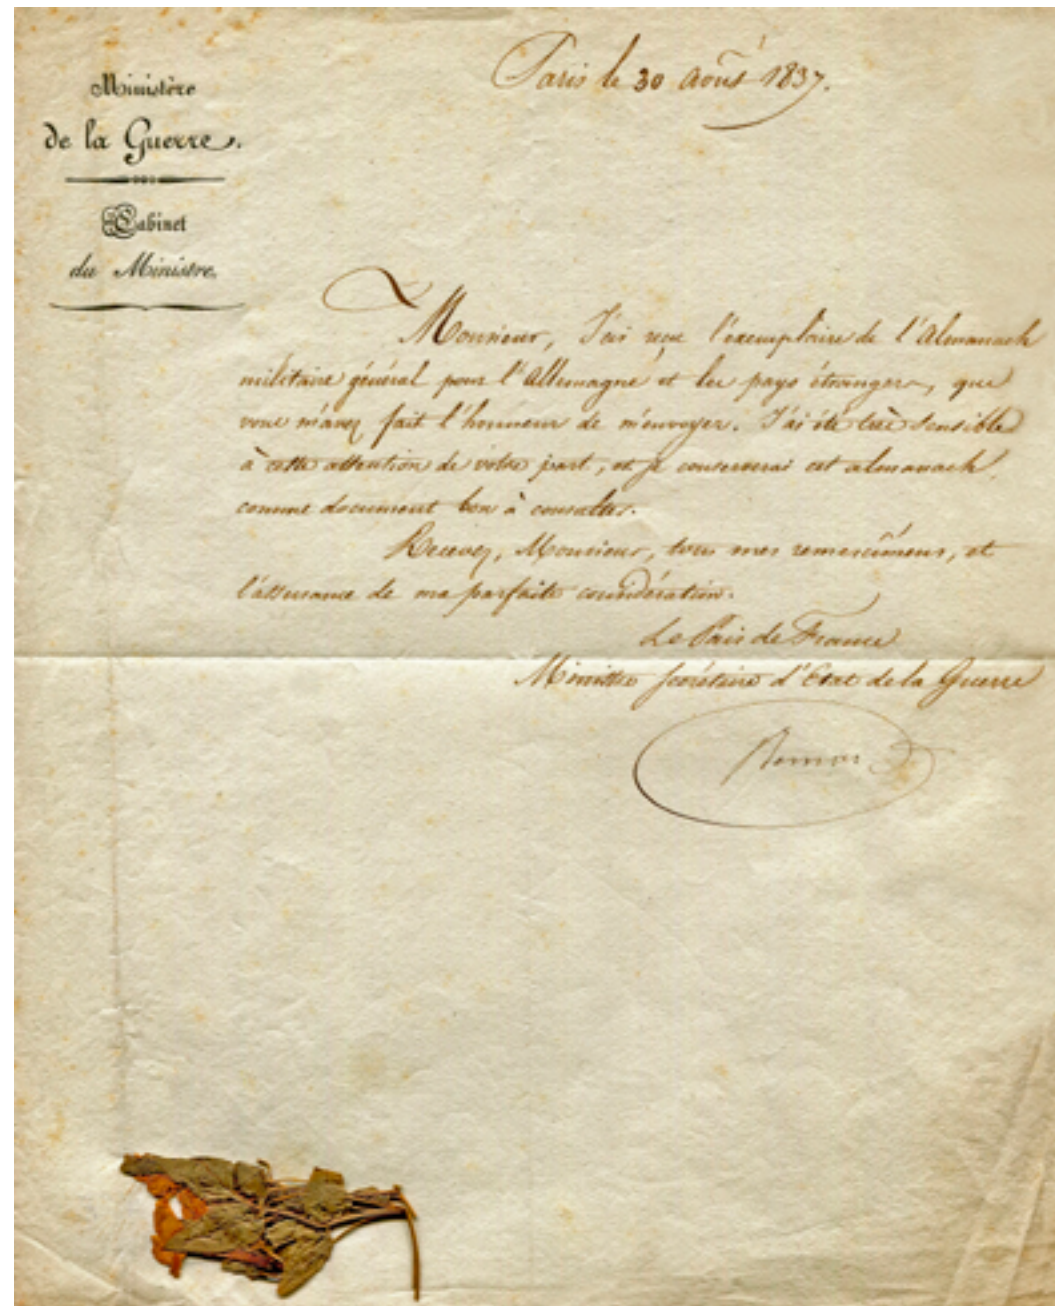 Ministère
de la Guerre.
Cabinet
du Ministre.
Paris le 30 août 1837.
Monsieur, J'ai reçu l'exemplaire de l'Almanach
militaire général pour l'Allemagne et les pays étrangers, que
vous m'avez fait l'honneur de m'envoyer. J'ai été très sensible
à cette attention de votre part, et je conserverai cet almanach
comme document bon à consulter.
Recevez, Monsieur, tous mes remercîmens, et
l'assurance de ma parfaite considération.
Le Pair de France
Ministre secrétaire d'Etat de la Guerre